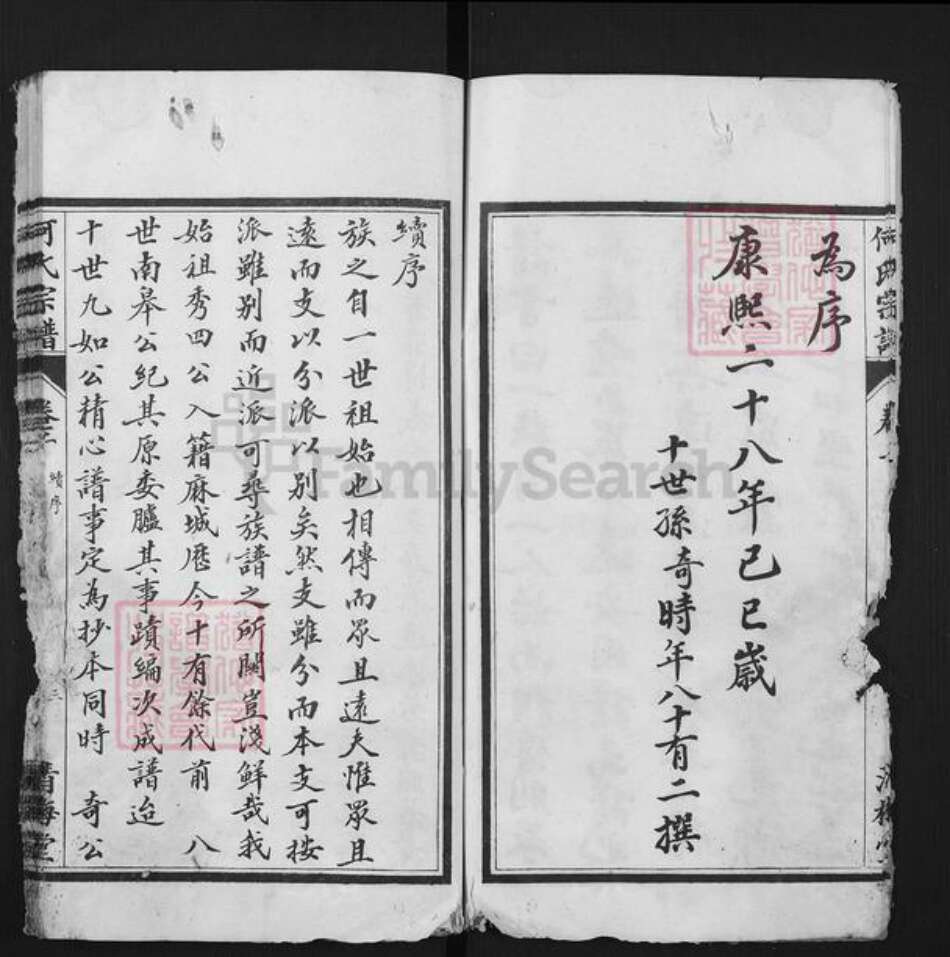 為序
康熙二十八年己巳歲
十世孫奇時年八十有二撰
續序
族之自一世祖始也相傳而眾且遠夫惟眾且
遠而支以分派以別矣然支雖分而本支可按
派雖别而近派可尋族譜之所關豈淺鮮哉我
始祖秀四公入籍麻城歷今十有餘代前 八
世南皋公紀其原委臚其事蹟編次成譜迨
十世九如公精心譜事定為抄本同時 奇公
何氏宗譜
續序
三
FamilySearch